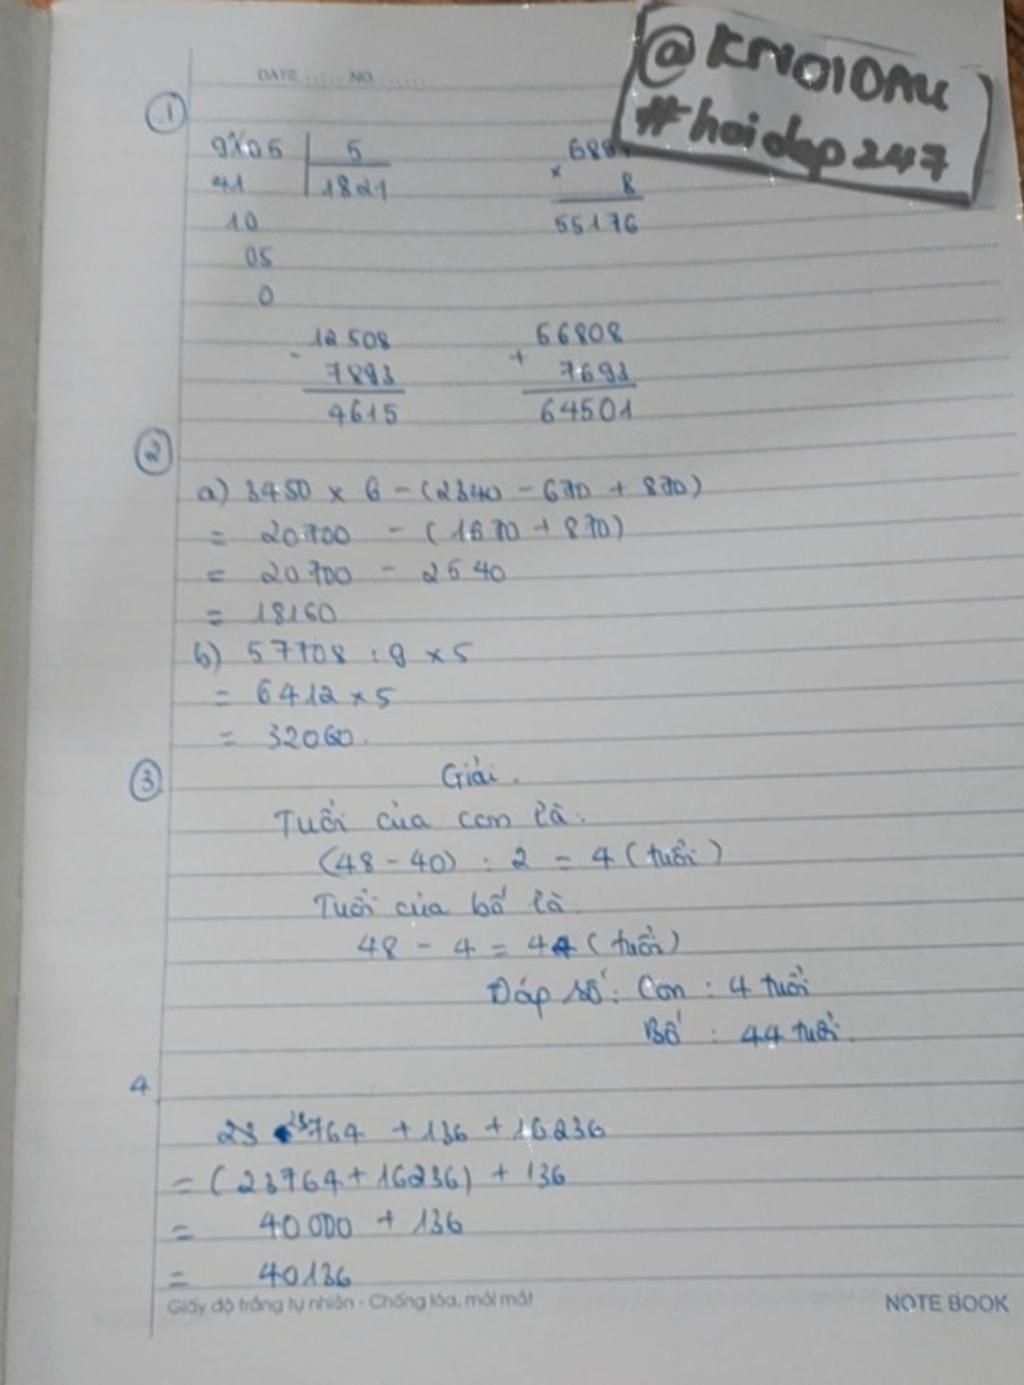 DATE ...... NO .......
@KNOIDAU
#hoidap247
1
9105 | 5
41 1821
10
05
0
×
8
55176
12508
-
7893
4615
56808
+
7693
64501
2
a) 3450 × 6 - (2340 - 670 + 870)
= 20700 - (1670 + 870)
= 20700 - 2540
= 18160
b) 57708 : 9 × 5
= 6412 × 5
= 32060.
3
Giải.
Tuổi của con là:
(48 - 40) : 2 = 4 (tuổi)
Tuổi của bố là:
48 - 4 = 44 (tuổi)
Đáp số: Con : 4 tuổi
Bố : 44 tuổi.
4
23764 + 136 + 16236
= (23764 + 16236) + 136
= 40000 + 136
= 40136
Giấy độ trắng tự nhiên - Chống lóa, mỏi mắt
NOTE BOOK